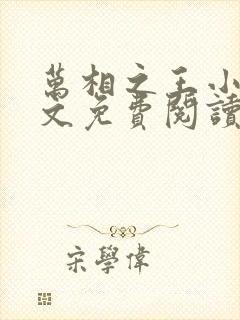 萬相之王小
文免費閱讀
宋學偉